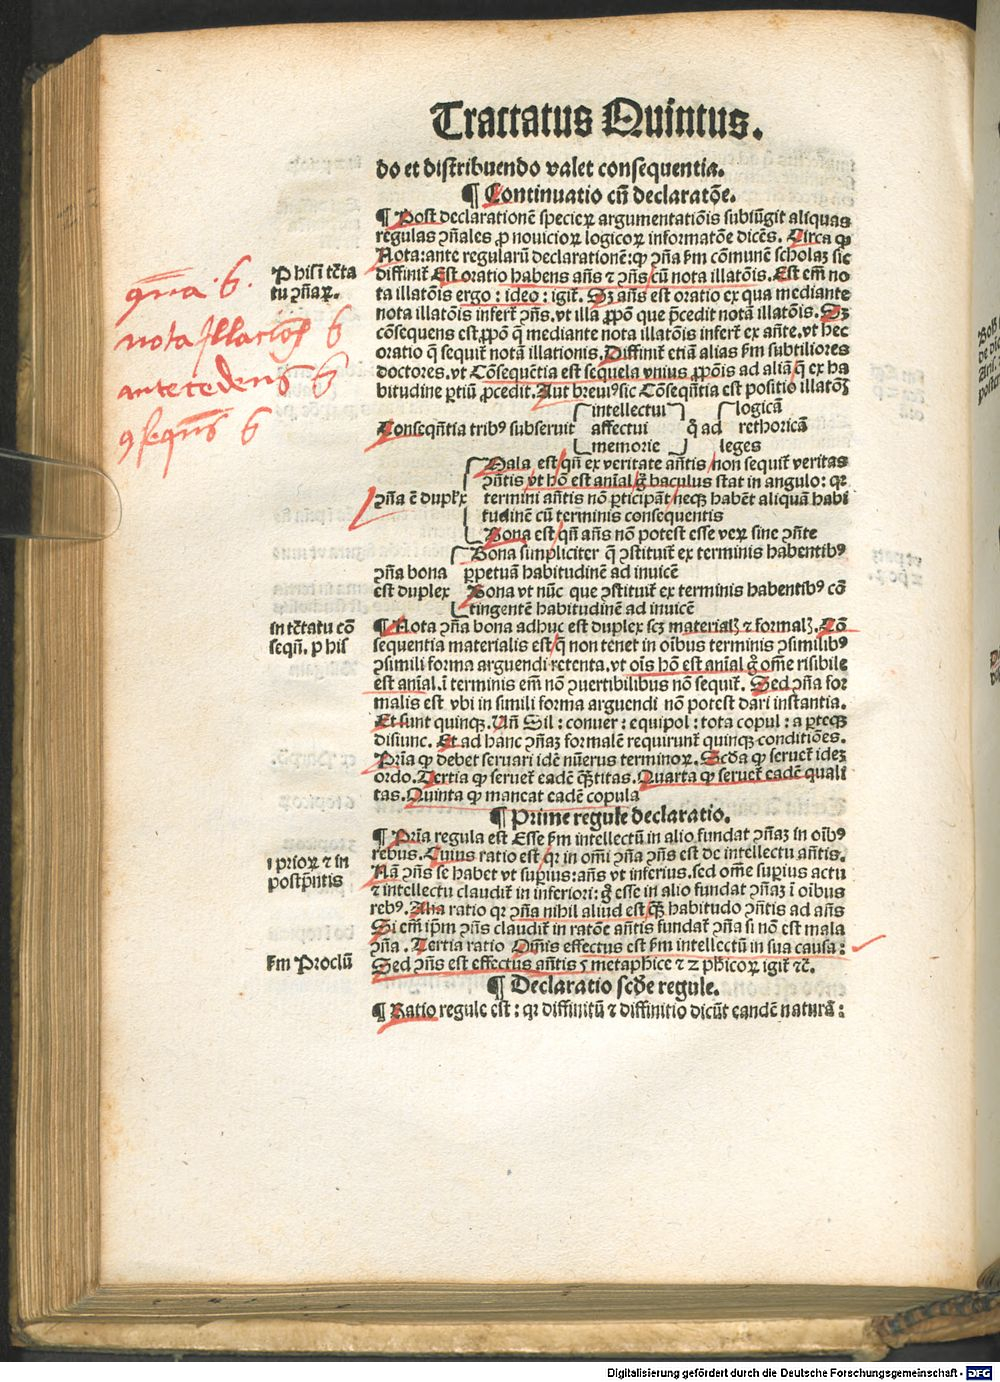 Tractatus Quintus.
do et distribuendo valet consequentia.
¶ Continuatio cū declaratōe.
¶ Post declarationē specieꝝ argumentatiōis subiūgit aliquas
regulas ꝯn̄ales ꝓ novicioꝝ logicoꝝ informatōe dicēs. Circa
Nota: ante regularū declarationē: ꝙ ꝯn̄a ẜm cōmunē scholaꝫ sic
diffinit᷑ Est oratio habens an̄s ⁊ ꝯn̄s cū nota illatōis. Est em̄ no
ta illatōis ergo: ideo: igit᷑. Sꝫ an̄s est oratio ex qua mediante
nota illatōis infert᷑ ꝯn̄s. vt illa ꝓpō que p̄cedit notā illatōis. Sꝫ
cōsequens est ꝓpō q̄ mediante nota illatōis infert᷑ ex an̄te. vt hec
oratio q̄ sequit᷑ notā illationis. Diffinit᷑ etiā alias ẜm subtiliores
doctores. vt Cōsequētia est sequela vnius ꝓpōis ad aliā q̄ ex ha
bitudine ꝑtiū ꝓcedit. Aut breviꝰ sic Cōseqn̄tia est positio illatōꝫ
Conseqn̄tia tribꝰ subseruit
intellectui
affectui
memorie
q̄ ad
logicā
rethoricā
leges
ꝯn̄a ē duplex
Mala est qn̄ ex veritate an̄tis non sequit᷑ veritas
ꝯn̄tis vt hō est aniāl g̊ baculus stat in angulo: qꝛ
termini an̄tis nō ꝑticipāt neqꝫ habēt aliquā habi
tudinē cū terminis consequentis
Bona est qn̄ an̄s nō potest esse veꝝ sine ꝯn̄te
ꝯn̄a bona
est duplex
Bona simpliciter q̄ ꝯstituit᷑ ex terminis habentibꝰ
ꝑpetuā habitudinē ad invicē
Bona vt nūc que ꝯstituit᷑ ex terminis habentibꝰ cō
tingentē habitudinē ad invicē
¶ Nota ꝯn̄a bona adhuc est duplex scꝫ materialꝫ ⁊ formalꝫ. Cō
sequentia materialis est q̄ non tenet in oībus terminis ꝯsimilibꝰ
ꝯsimili forma arguendi retenta. vt oīs hō est aniāl g̊ om̄e risibile
est aniāl. ī terminis em̄ nō ꝯvertibilibus nō sequit᷑. Sed ꝯn̄a for
malis est vbi in simili forma arguendi nō potest dari instantia.
Et sunt quinqꝫ. Vn̄ Sil: conver: equipol: tota copul: a ꝑteqꝫ
disiunc. Et ad hanc ꝯn̄aꝫ formalē requirunt᷑ quinqꝫ conditiōes.
Pria ꝙ debet seruari idē nūerus terminoꝝ. Scd̄a ꝙ seruet᷑ ideꝫ
ordo. Tertia ꝙ seruet᷑ eadē q̄ntitas. Quarta ꝙ seruet᷑ eadē quali
tas. Quinta ꝙ maneat eadē copula
¶ Prime regule declaratio.
¶ Pria regula est Esse ẜm intellectū in alio fundat ꝯn̄aꝫ in oībꝰ
rebus. Cuius ratio est qꝛ in omī ꝯn̄a ꝯn̄s est de intellectu an̄tis.
Nā ꝯn̄s se habet vt suꝑius: an̄s vt inferius. sed om̄e suꝑius actu
⁊ intellectu claudit᷑ in inferiori: g̊ esse in alio fundat ꝯn̄aꝫ ī oībus
rebꝰ. Alia ratio qꝛ ꝯn̄a nihil aliud est qꝫ habitudo ꝯn̄tis ad an̄s
Si em̄ ip̄m ꝯn̄s claudit᷑ in ratōe an̄tis fundat᷑ ꝯn̄a si nō est mala
ꝯn̄a. Tertia ratio Om̄is effectus est ẜm intellectū in sua causa:
Sed ꝯn̄s est effectus an̄tis 5 metaphice ⁊ 2 phicoꝝ igit᷑ ⁊c̄.
¶ Declaratio scd̄e regule.
¶ Ratio regule est: qꝛ diffinitū ⁊ diffinitio dicūt eandē naturā:
P hisī tc̄ta
tu ꝯn̄aꝝ.
ꝯn̄na. 6.
nota Illacionꝭ 6
antecedens 6
ꝯsequn̄s 6
in tc̄tatu cō
seqn̄. p his
1 prioꝝ ⁊ in
postp̄ntis
ẜm Proclū
Digitalisierung gefördert durch die Deutsche Forschungsgemeinschaft - DFG